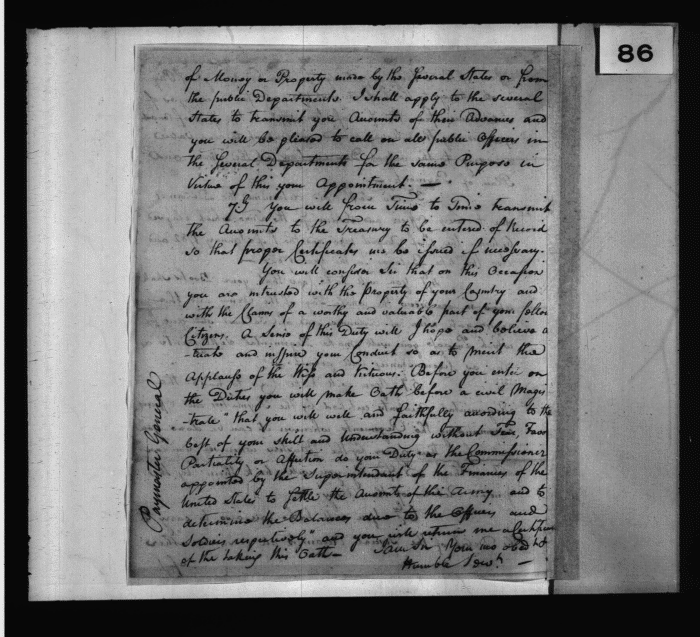 86
of Money or Property made by the several States or from
the public Departments. I shall apply to the several
States to transmit you Accounts of their Advances and
you will be pleased to call on all public Officers in
the several Departments for the same Purpose in
Virtue of this your Appointment. —
7th You will from Time to Time transmit
the Accounts to the Treasury to be entered of Record
so that proper Certificates may be issued if necessary.
You will consider Sir that on this Occasion
you are intrusted with the Property of your Country and
with the Claims of a worthy and valuable part of your fellow
Citizens. A Sense of this Duty will I hope and believe a
and inspire your Conduct so as to merit the
Applause of the Wise and Virtuous. Before you enter on
the Duties you will make Oath before a civil Magis
-trate "that you will well and faithfully according to the
best of your skill and Understanding without Fear, Favor
Partiality or Affection do your Duty as the Commissioner
appointed by the Superintendant of the Finances of the
United States to settle the Accounts of the Army and to
determine the Balances due to the Officers and
Soldiers respectively" and you will return me a Certificate
of the taking this Oath — I am Sir Your mo obed. &
Humble Serv.t —
Paymaster General